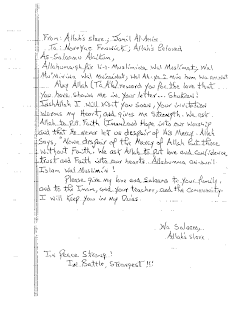 From: Allah's slave, Jamil Al-Amin
To: Noreyae Fenwick, Allah's Beloved
As-Salaamu Alaikum,
Allahumagh-fir lil-Muslimiina, Wal Muslimaat, Wal
Mu'Miniina Wal Mu'minaat, Wal Ah-ya-i min hum Wal
May Allah (T.A.) reward you for the love that
you have shown me in your letter... Shukran!
InshAllah I will visit you soon, your invitation
warms my Heart, and gives me strength. We ask
Allah to put Faith (Iman) and Hope into our worship
and that he never let us despair of His Mercy. Allah
Says, "None despair of the Mercy of Allah but those
without Faith." We ask Allah to put love and confidence
trust and Faith into our hearts. Allahumma
Islam Wal Muslimiin!
Please give my love and Salaams to your family,
and to the Imam, and your teacher, and the community.
I will keep you in my Duas.
Wa Salaam,
Allah's slave
In Peace Strong!
In Battle, Strongest!!!